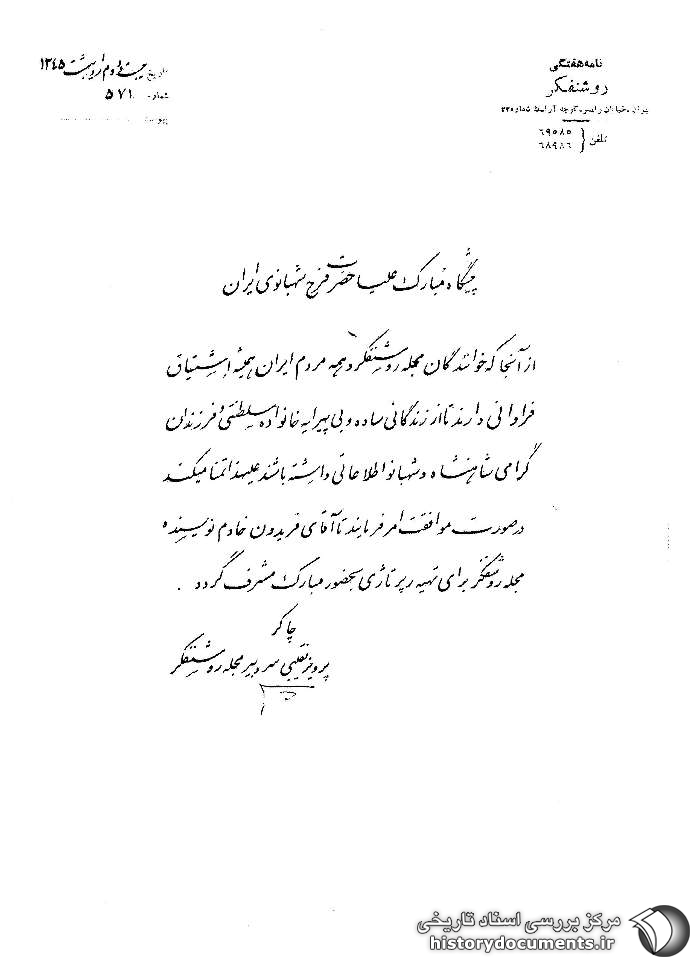 نامه هفتگی
روشنفکر
تهران خیابان رامسر کوچه آراسته شماره ۲۳۵
تلفن { ۶۹۵۸۵
۶۸۹۸۶
تاریخ بیست و دوم اردیبهشت ۱۳۴۵
شماره ۵۷۱
پیوست
پیشگاه مبارک علیاحضرت فرح شهبانوی ایران
از آنجا که خوانندگان مجله روشنفکر و همه مردم ایران همیشه اشتیاق
فراوانی دارند تا از زندگانی ساده و بی پیرایه خانواده سلطنتی و فرزندان
گرامی شاهنشاه و شهبانو اطلاعاتی داشته باشند علیهذا تمنا میکند
در صورت موافقت امر فرمایند تا آقای فریدون خادم نویسنده
مجله روشنفکر برای تهیه رپرتاژی بحضور مبارک مشرف گردد .
چاکر
پرویز نقیبی سردبیر مجله روشنفکر
مرکز بررسی اسناد تاریخی
historydocuments.ir